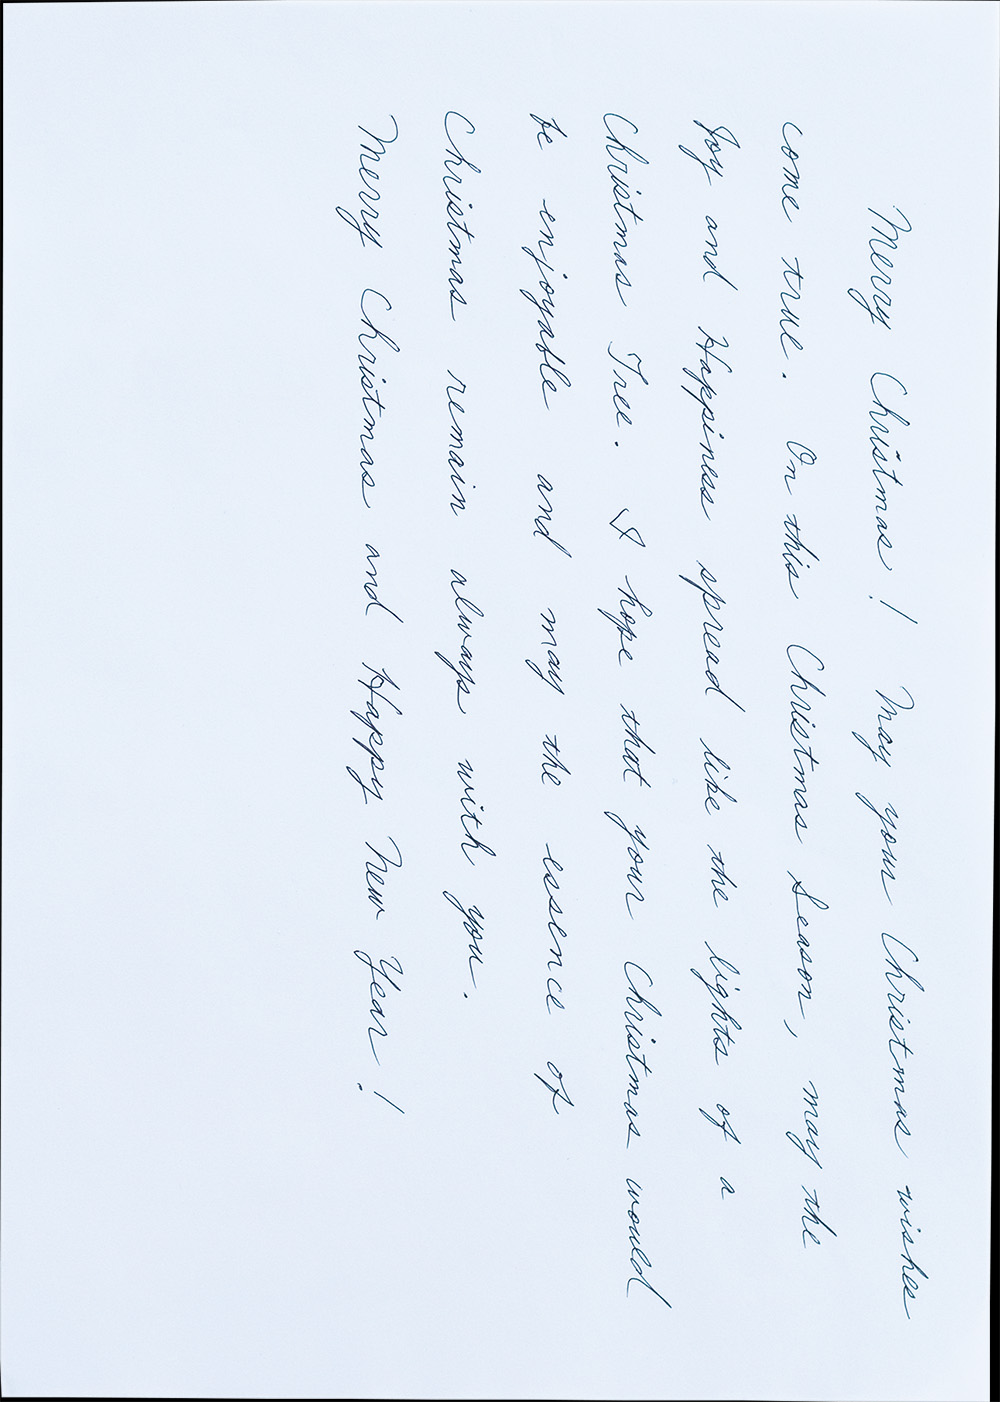 Merry Christmas! May your Christmas wishes
come true. On this Christmas Season, may the
Joy and Happiness spread like the lights of a
Christmas Tree. I hope that your Christmas would
be enjoyable and may the essence of
Christmas remain always with you.
Merry Christmas and Happy New Year!